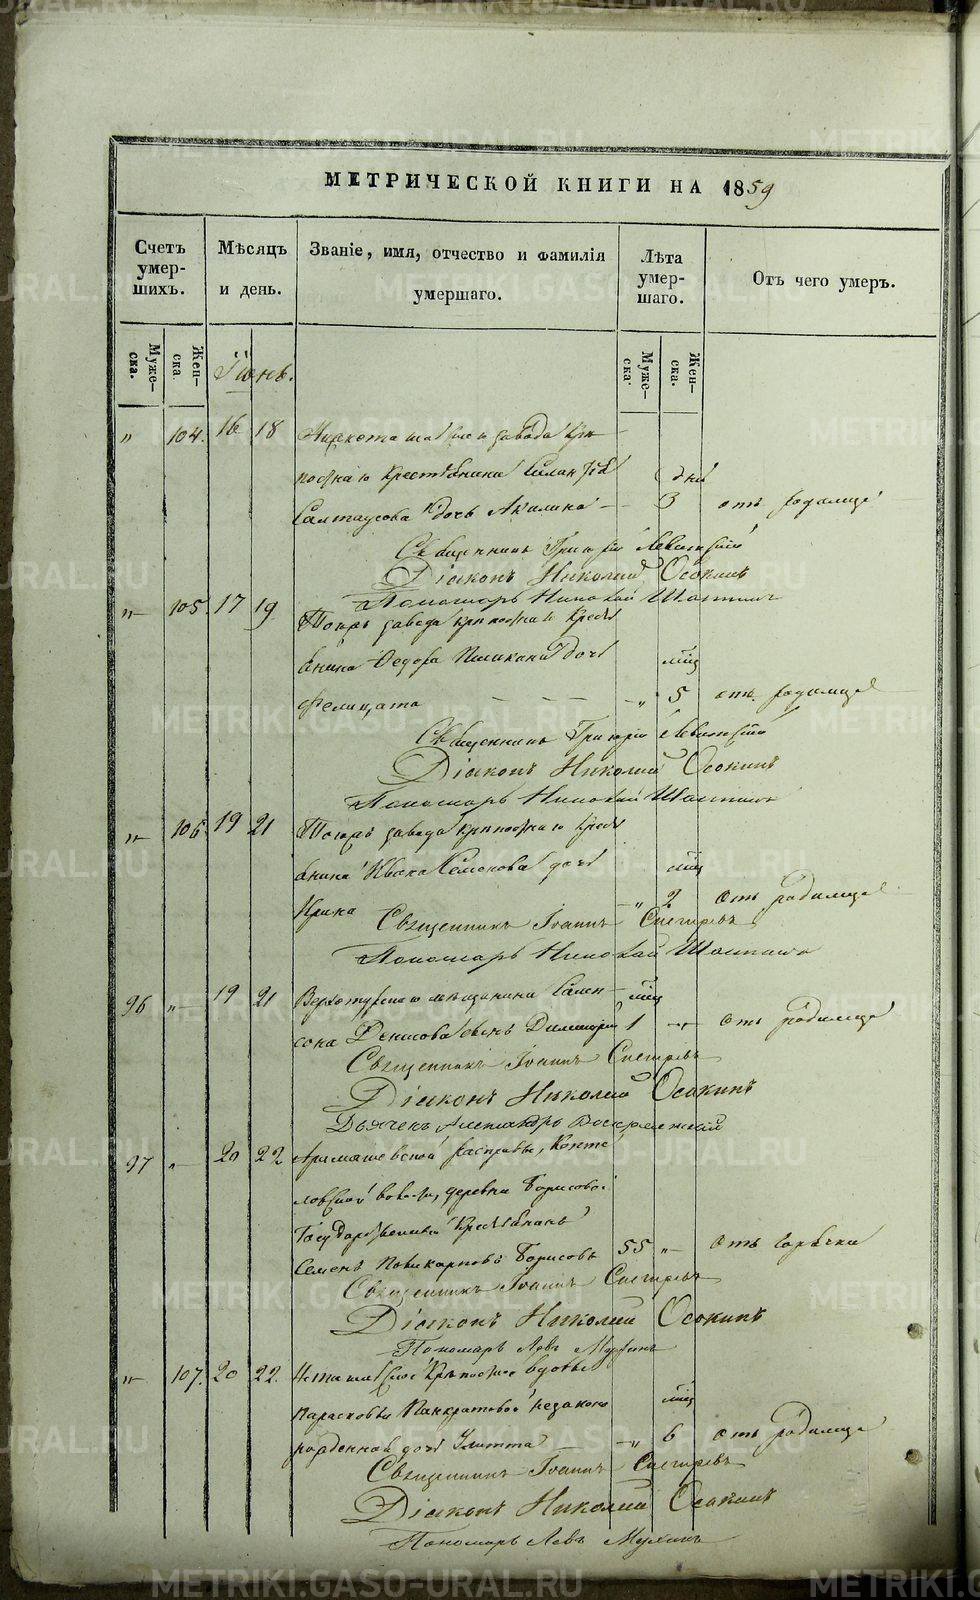 METRIKI.GASO-URAL.RU
МЕТРИЧЕСКОЙ КНИГИ НА 1859
Счетъ умер-шихъ.
Мѣсяцъ и день.
Званіе, имя, отчество и фамилія умершаго.
Лѣта умер-шаго.
Отъ чего умеръ.
Муже-ска.
Жен-ска.
Муже-ска.
Жен-ска.
Іюнь.
" 104. 16 18 завода крѣ
постнаго крестьянина
дочь Акилина 3 отъ родимца
Священникъ Григорій Левитскій
Діаконъ Николай Осокинъ
Пономарь Николай
" 105. 17 19 завода крѣпостнаго кресть
янина Федора дочь мѣц
Фелицата " 5 отъ родимца
Священникъ Григорій Левитскій
Діаконъ Николай Осокинъ
Пономарь Николай
" 106. 19 21 завода крѣпостнаго кресть
янина Ивана Семенова дочь мѣц
Ирина " 2 отъ родимца
Священникъ Іоаннъ Снегиревъ
Пономарь Николай
96 " 19 21 Верхотурскаго мѣщанина Самп- мѣц
сона Денисова сынъ Димитрій 1 " отъ родимца
Священникъ Іоаннъ Снегиревъ
Діаконъ Николай Осокинъ
Дьячекъ Александръ
97 " 20 22 Арамашевской расправы,
волости, деревни Борисовой
Государственный крестьянинъ
Семенъ Поликарповъ Борисовъ 55 " отъ горячки
Священникъ Іоаннъ Снегиревъ
Діаконъ Николай Осокинъ
Пономарь Левъ Мухинъ
" 107. 20 22. крѣпостной вдовы
Парасковьи Панкратовой незаконно мѣц
рожденная дочь Улитта " 6 отъ родимца
Священникъ Іоаннъ Снегиревъ
Діаконъ Николай Осокинъ
Пономарь Левъ Мухинъ